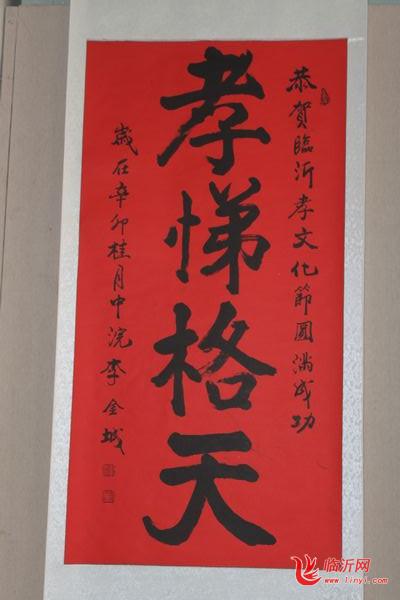 恭賀臨沂孝文化節圓满成功
孝悌格天
歲在辛卯桂月中浣李金城
临沂网
www.linyi.com